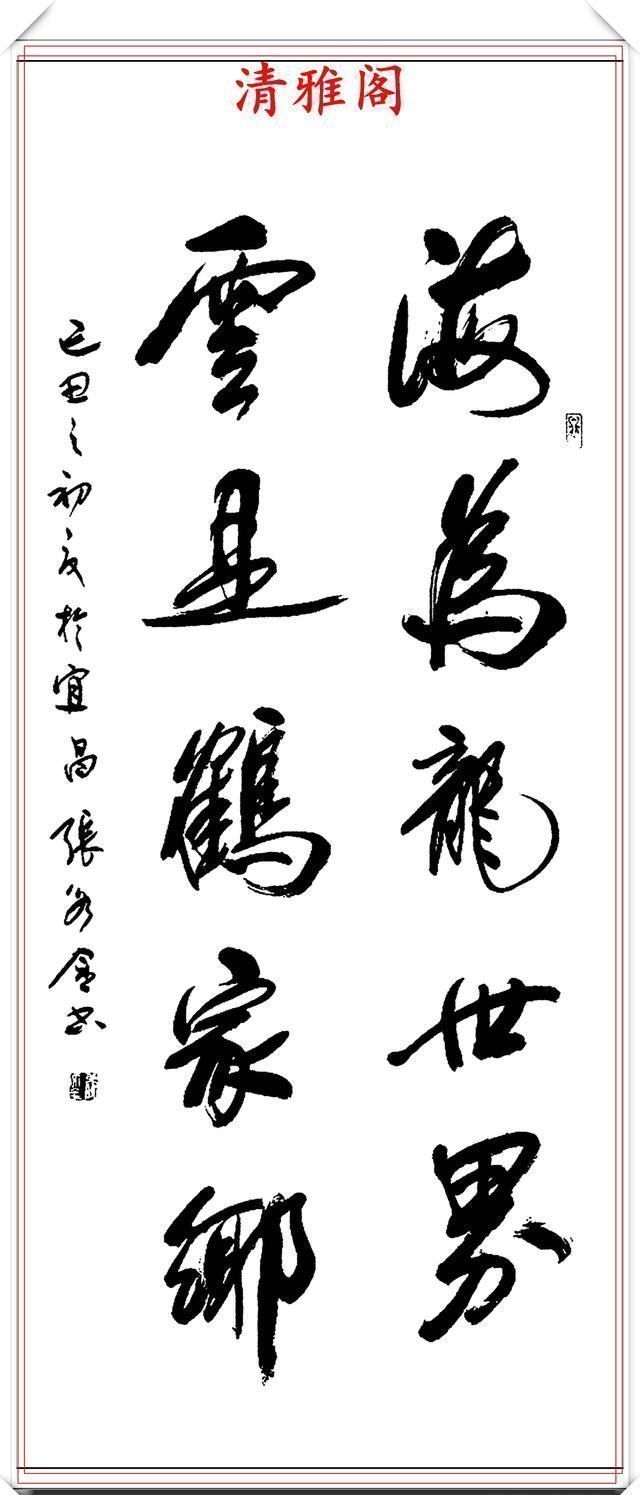 清雅阁
海為龍世界
雲是鶴家鄉
己丑之初夏於宜昌張家書